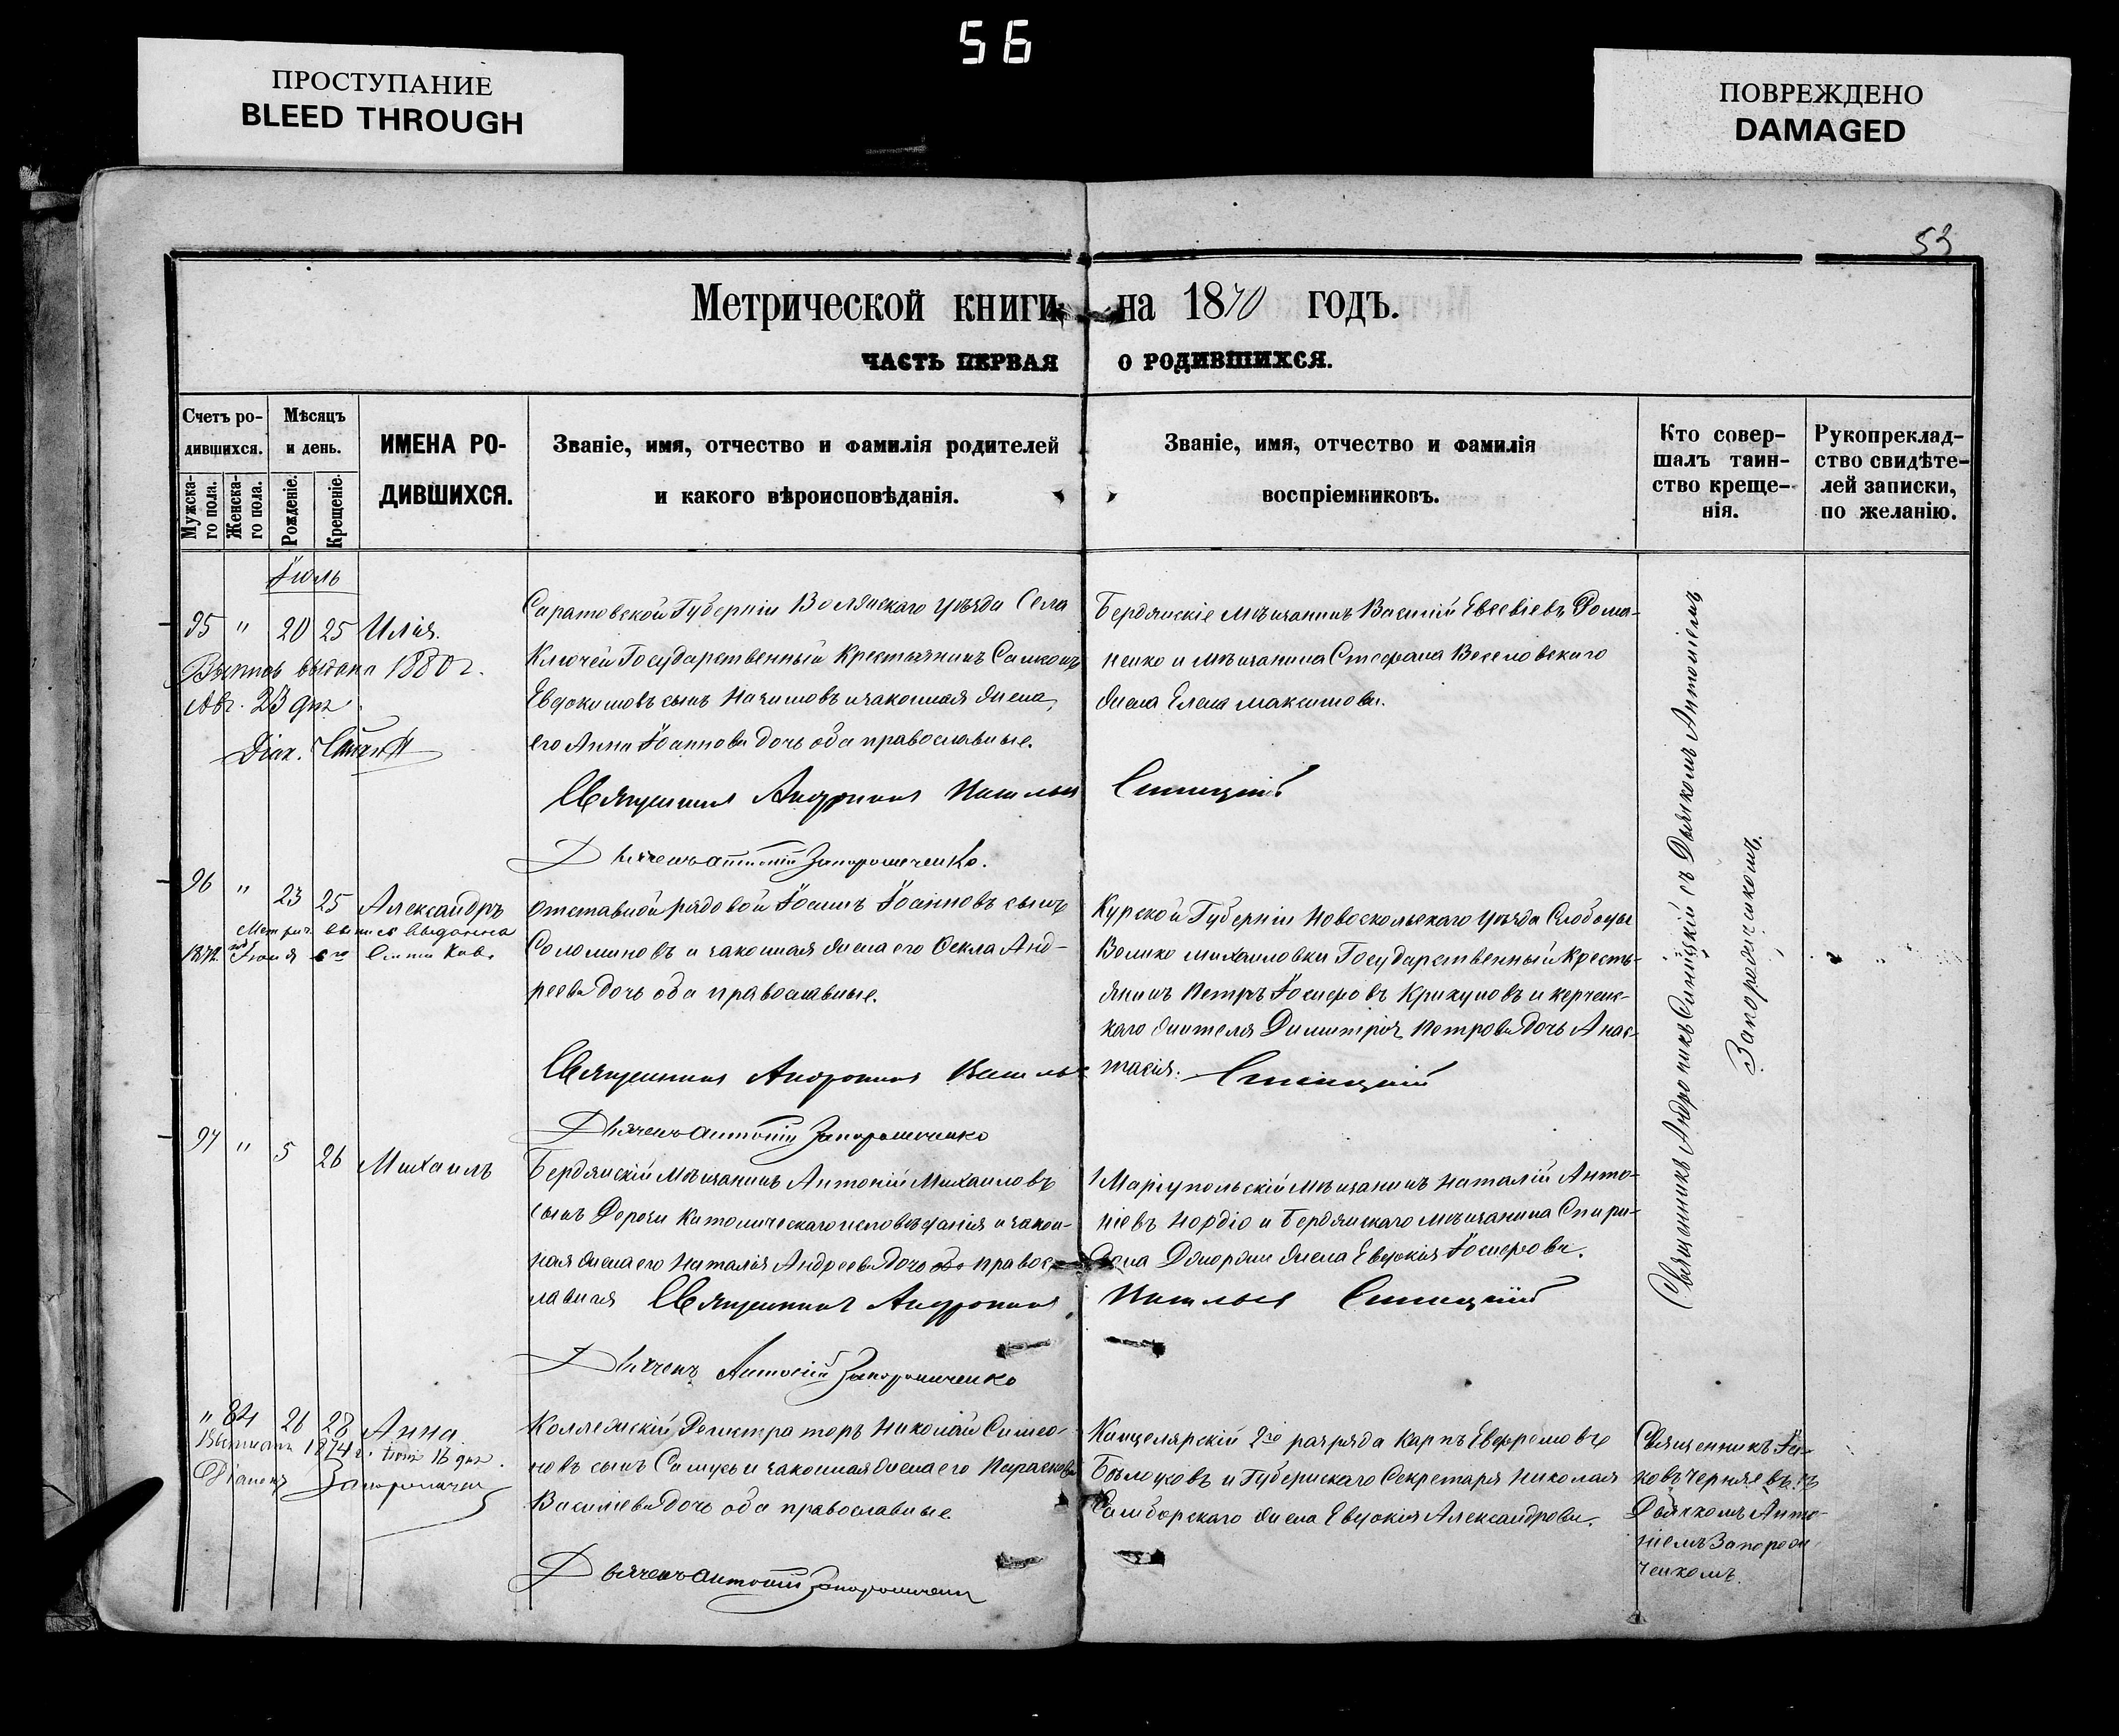 56
ПРОСТУПАНИЕ
BLEED THROUGH
ПОВРЕЖДЕНО
DAMAGED
53
Метрической книги на 1870 годъ.
ЧАСТЬ ПЕРВАЯ О РОДИВШИХСЯ.
Счетъ ро-
дившихся.
Мужска-
го пола.
Женска-
го пола.
Мѣсяцъ
и день.
Рожденіе.
Крещеніе.
ИМЕНА РО-
ДИВШИХСЯ.
Званіе, имя, отчество и фамилія родителей
и какого вѣроисповѣданія.
Званіе, имя, отчество и фамилія
воспріемниковъ.
Кто совер-
шалъ таин-
ство креще-
нія.
Рукоприклад-
ство свидѣте-
лей записки,
по желанію.
Іюль
95 " 20 25 Илія.
выдана 1880 г.
Авг. 23 дня
Діак.
Саратовской Губерніи Вольскаго уѣзда Села
Ключей Государственный Крестьянинъ
Евдокимовъ сынъ и законная жена
его Анна Іоаннова дочь оба православные.
Священникъ Андроникъ Васильевъ Синицкій
Дьячекъ Антоній Запорожченко.
Бердянскіе мѣщанинъ Василій Евсевіевъ Рома-
ненко и мѣщанина Стефана Веселовскаго
жена Елена Максимова.
96 " 23 25 Александръ
Метрич. выпись выдана
1872 Іюня
Отставной рядовой Іоаннъ Іоанновъ сынъ
Соломиновъ и законная жена его Ѳекла Анд-
реева дочь оба православные.
Священникъ Андроникъ Синицкій
Дьячекъ Антоній Запорожченко
Курской Губерніи Новоскольскаго уѣзда Слободы
Велико михаиловки Государственный Кресть-
янинъ Петръ Іосифовъ Крикуновъ и керченс-
каго жителя Димитрія Петрова дочь Анас-
тасія.
97 " 5 26 Михаилъ
Бердянскій мѣщанинъ Антоній Михаиловъ
сынъ католическаго исповѣданія и закон-
ная жена его Наталія Андреева дочь правос-
лавная Священникъ Андроникъ Синицкій
Дьячекъ Антоній Запорожченко
Маріупольскій мѣщанинъ Наталій Анто-
ніевъ и Бердянскаго мѣщанина Спири-
дона жена Евдокія Іосифова.
Священникъ Андроникъ Синицкій съ Дьячкомъ Антоніемъ
Запорожченкомъ.
" 84 26 28 Анна.
1874 г. 16 дня.
Діаконъ
Коллежскій Регистраторъ Николай Симео-
новъ сынъ Самусь и законная жена его Параскева
Василіева дочь оба православные.
Дьячекъ Антоній Запорожченко
Канцелярскій 2го разряда Карпъ Ефремовъ
и Губернскаго Секретаря Николая
Самборскаго жена Евдокія Александрова.
Священникъ Іа-
ковъ Черняевъ съ
Дьячкомъ Анто-
ніемъ Запорож-
ченкомъ.